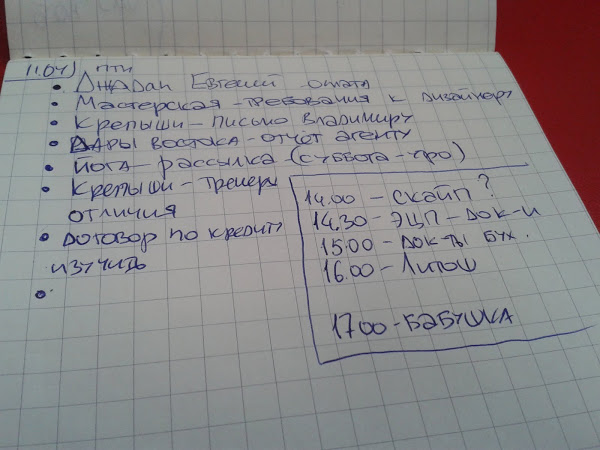 11.04) ПТН
• Джадан Евгений - оплата
• Мастерская - требования к дизайнеру
• Крепыши - письмо Владимиру
• Дары Востока - отчёт агенту
• Йога - рассылка (суббота - утро)
• Крепыши - тренеры
отличия
• договор по кредиту
изучить
•
14.00 - скайп?
14.30 - ЭЦП - док-и
15.00 - док-ты бух.
16.00 - Липош
17.00 - БАБУШКА